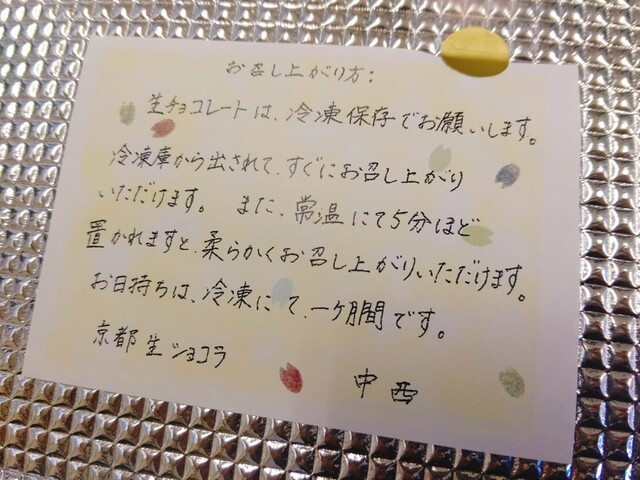 お召し上がり方:
生チョコレートは、冷凍保存でお願いします。
冷凍庫から出されて、すぐにお召し上がり
いただけます。 また、常温にて5分ほど
置かれますと、柔らかくお召し上がりいただけます。
お日持ちは、冷凍にて、一ケ月間です。
京都生ショコラ
中西